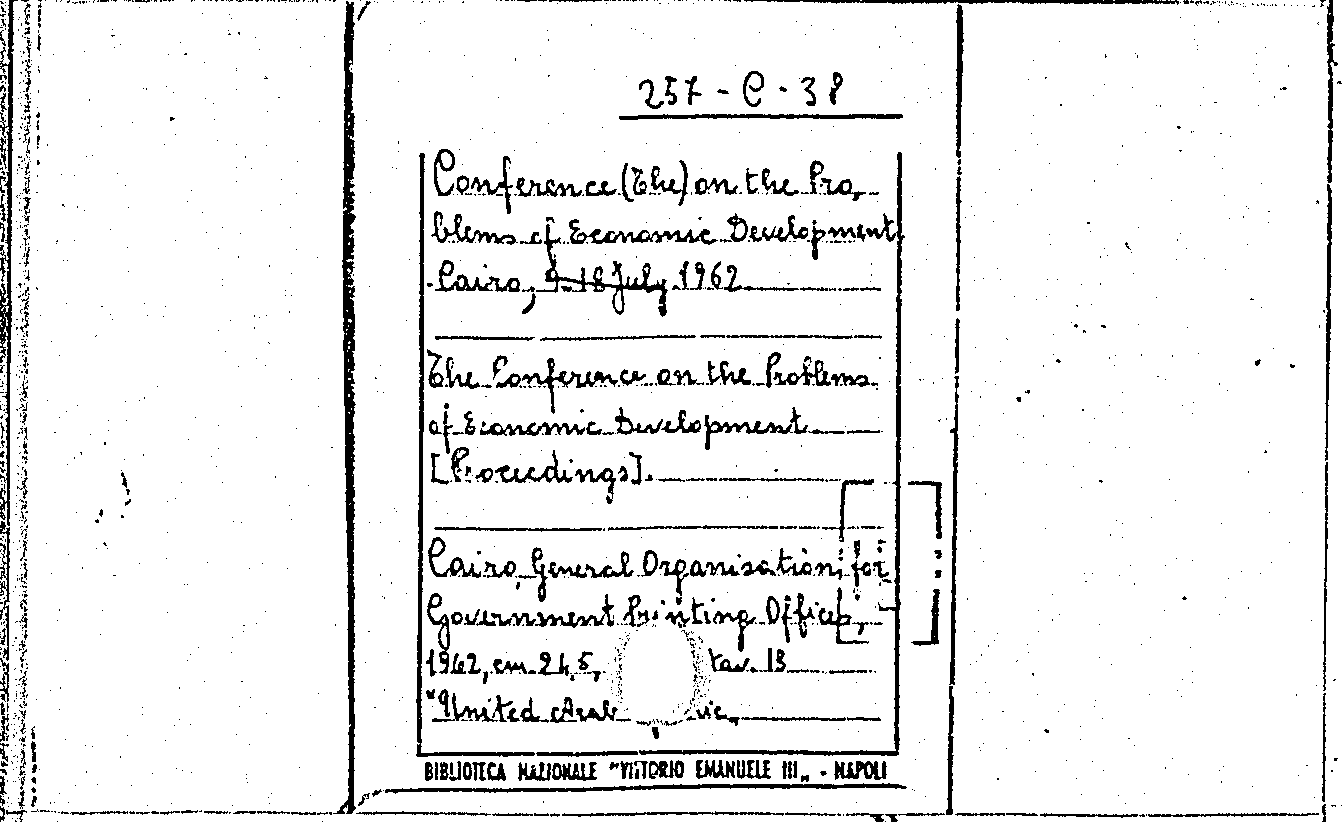 257-C-38
Conference (The) on the Pro-
blems of Economic Development.
Cairo, 9-18 July 1962.
The Conference on the Problems
of Economic Development
[Proceedings].
Cairo, General Organisation for
Government Printing Offices,
1962, cm. 24,5, tav. 13
"United Arab
BIBLIOTECA NAZIONALE "VITTORIO EMANUELE III„ - NAPOLI